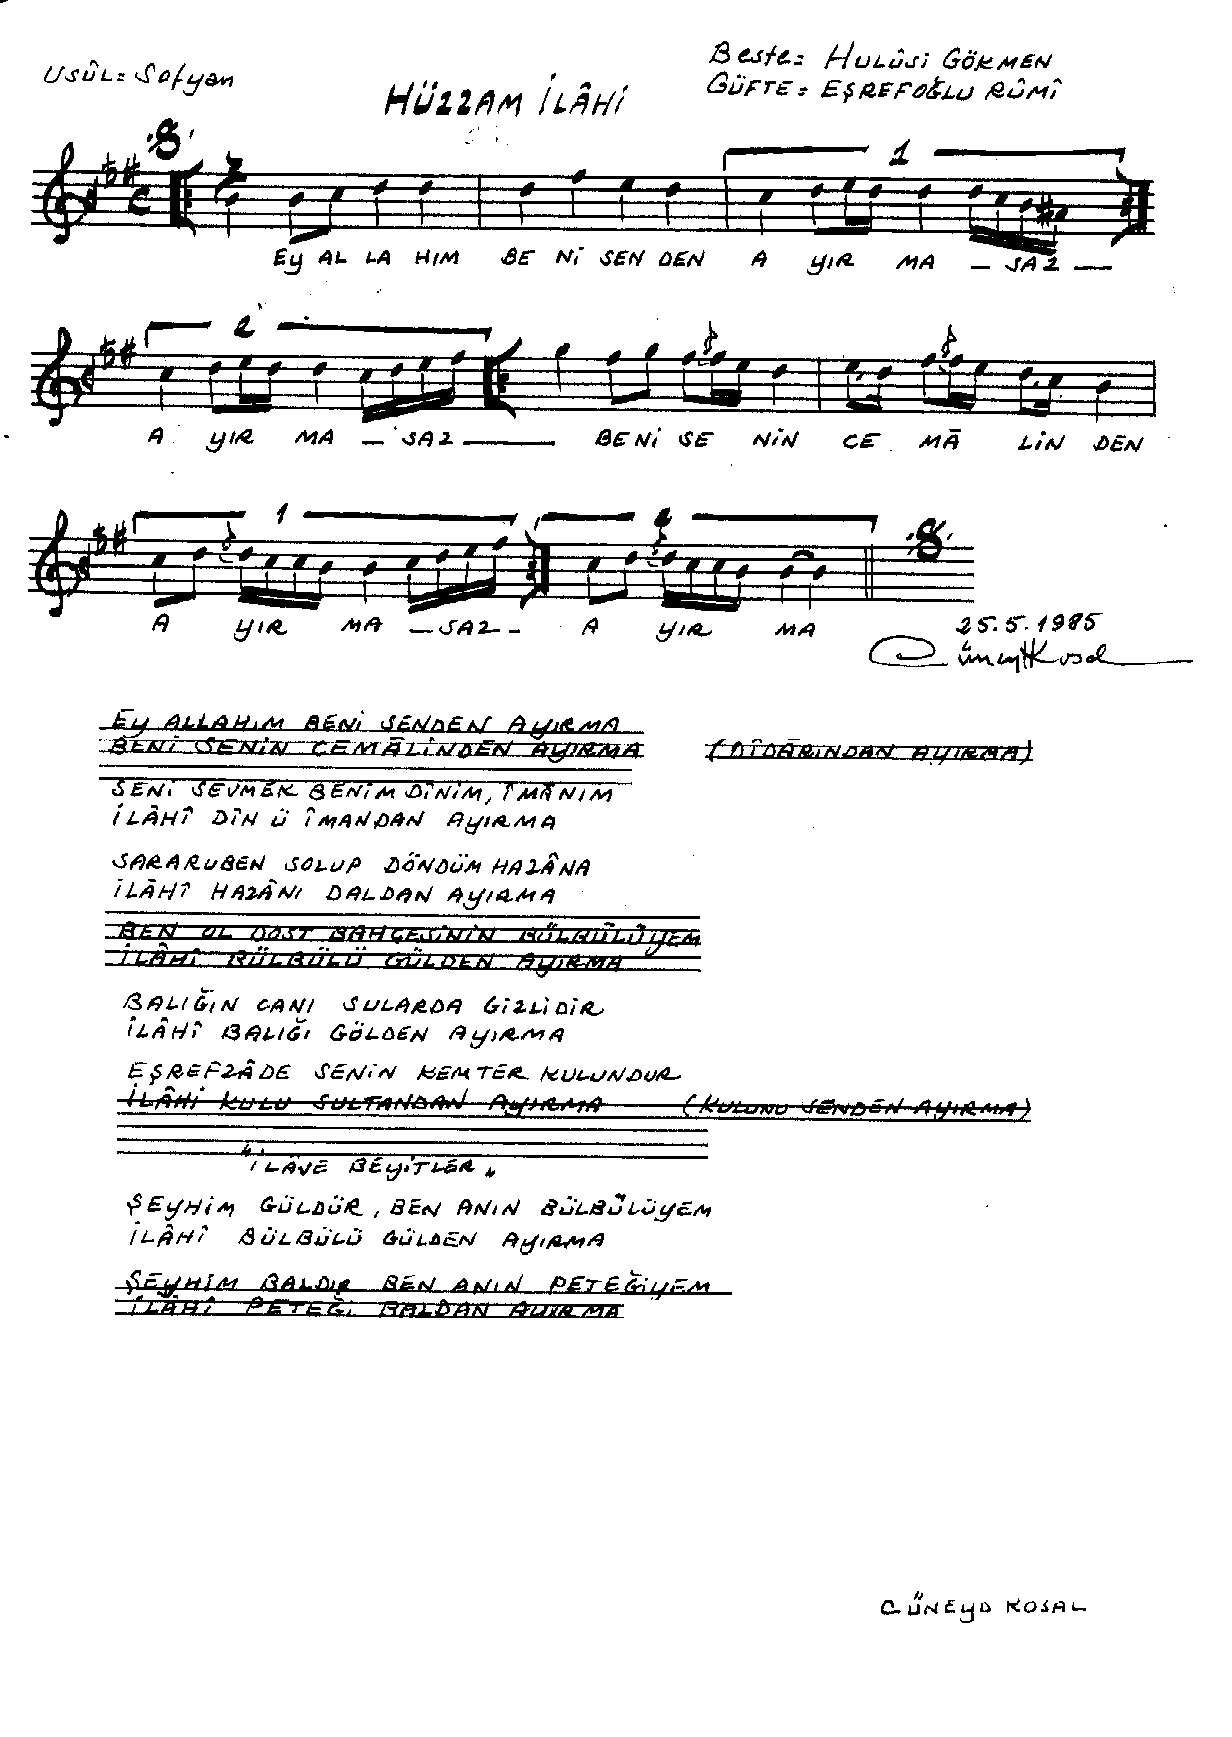 Usûl= Sofyan
Beste= HULÛSİ GÖKMEN
GÜFTE= EŞREFOĞLU RÛMÎ
HÜZZAM İLÂHİ
1
EY AL LA HIM BE Nİ SEN DEN A YIR MA — SAZ —
2
A YIR MA — SAZ — BE Nİ SE NİN CE MÂ LİN DEN
1 2
A YIR MA — SAZ - A YIR MA
25.5.1985
Cüneyt Kosal
EY ALLAHIM BENİ SENDEN AYIRMA
BENİ SENİN CEMÂLİNDEN AYIRMA (DÎDÂRINDAN AYIRMA)
SENİ SEVMEK BENİM DÎNİM, ÎMÂNIM
İLÂHÎ DÎN Ü ÎMANDAN AYIRMA
SARARUBEN SOLUP DÖNDÜM HAZÂNA
İLÂHÎ HAZÂNI DALDAN AYIRMA
BEN OL DOST BAHÇESİNİN BÜLBÜLÜYEM
İLÂHÎ BÜLBÜLÜ GÜLDEN AYIRMA
BALIĞIN CANI SULARDA GİZLİDİR
İLÂHÎ BALIĞI GÖLDEN AYIRMA
EŞREFZÂDE SENİN KEMTER KULUNDUR
İLÂHİ KULU SULTANDAN AYIRMA (KULUNU SENDEN AYIRMA)
"İLÂVE BEYİTLER"
ŞEYHİM GÜLDÜR, BEN ANIN BÜLBÜLÜYEM
İLÂHÎ BÜLBÜLÜ GÜLDEN AYIRMA
ŞEYHİM BALDIR BEN ANIN PETEĞİYEM
İLÂHÎ PETEĞİ BALDAN AYIRMA
CÜNEYD KOSAL